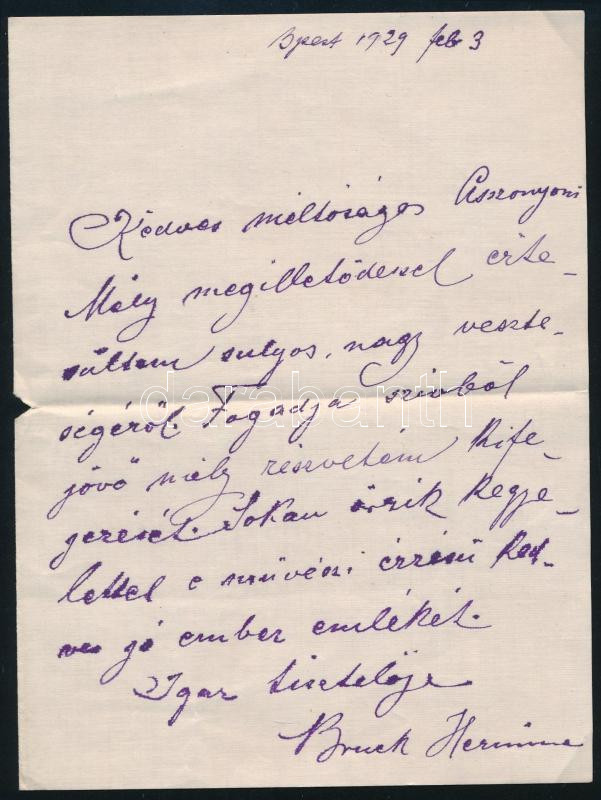 Bpest 1929 feb 3
Kedves méltóságos Asszonyom
Mély megilletődéssel érte-
sültem sulyos, nagy veszte-
ségéről. Fogadja szivből
jövő mély részvétem kife-
jezését. Sokan őrzik kegye-
lettel e művészi érzésű ked-
ves jó ember emlékét.
Igaz tisztelője
Bruck Hermina
darabanth